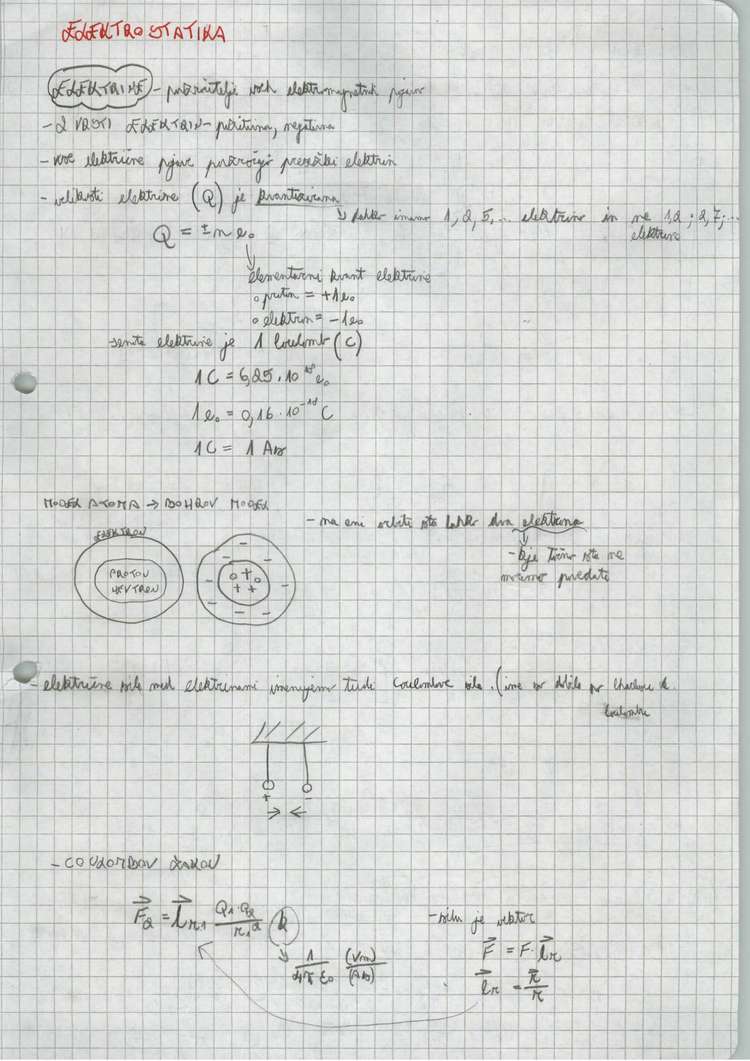 ELEKTROSTATIKA
ELEKTRINE - povzročitelji vseh elektromagnetnih pojavov
- 2 VRSTI ELEKTRIN - pozitivna, negativna
- vse električne pojave povzročijo presežki elektrin
- velikost elektrine (Q) je kvantizirana
↳ lahko imamo 1, 2, 5, ... elektrine in ne 1,2 ; 2,7; ...
elektrine
Q = ±n e₀
elementarni kvant elektrine
∘ proton = +1e₀
∘ elektron = -1e₀
→ enota elektrine je 1 Coulomb (C)
1C = 6,25 · 10¹⁸ e₀
1e₀ = 0,16 · 10⁻¹⁸ C
1C = 1 As
MODEL ATOMA → BOHROV MODEL
- na eni orbiti sta lahko dva elektrona
- kje točno sta ne
moremo
ELEKTRON
PROTON
NEVTRON
- električne sile med elektrinami imenujemo tudi Coulombove sile. (ime so dobile po Charlesu de
Coulombu
+ -
- COULOMBOV ZAKON
F⃗₂ = 1⃗r₁ Q₁·Q₂/r₁² k
1/4π ε₀ (Vm)/(As)
- sila je vektor
F⃗ = F · 1⃗r
1⃗r = r⃗/r